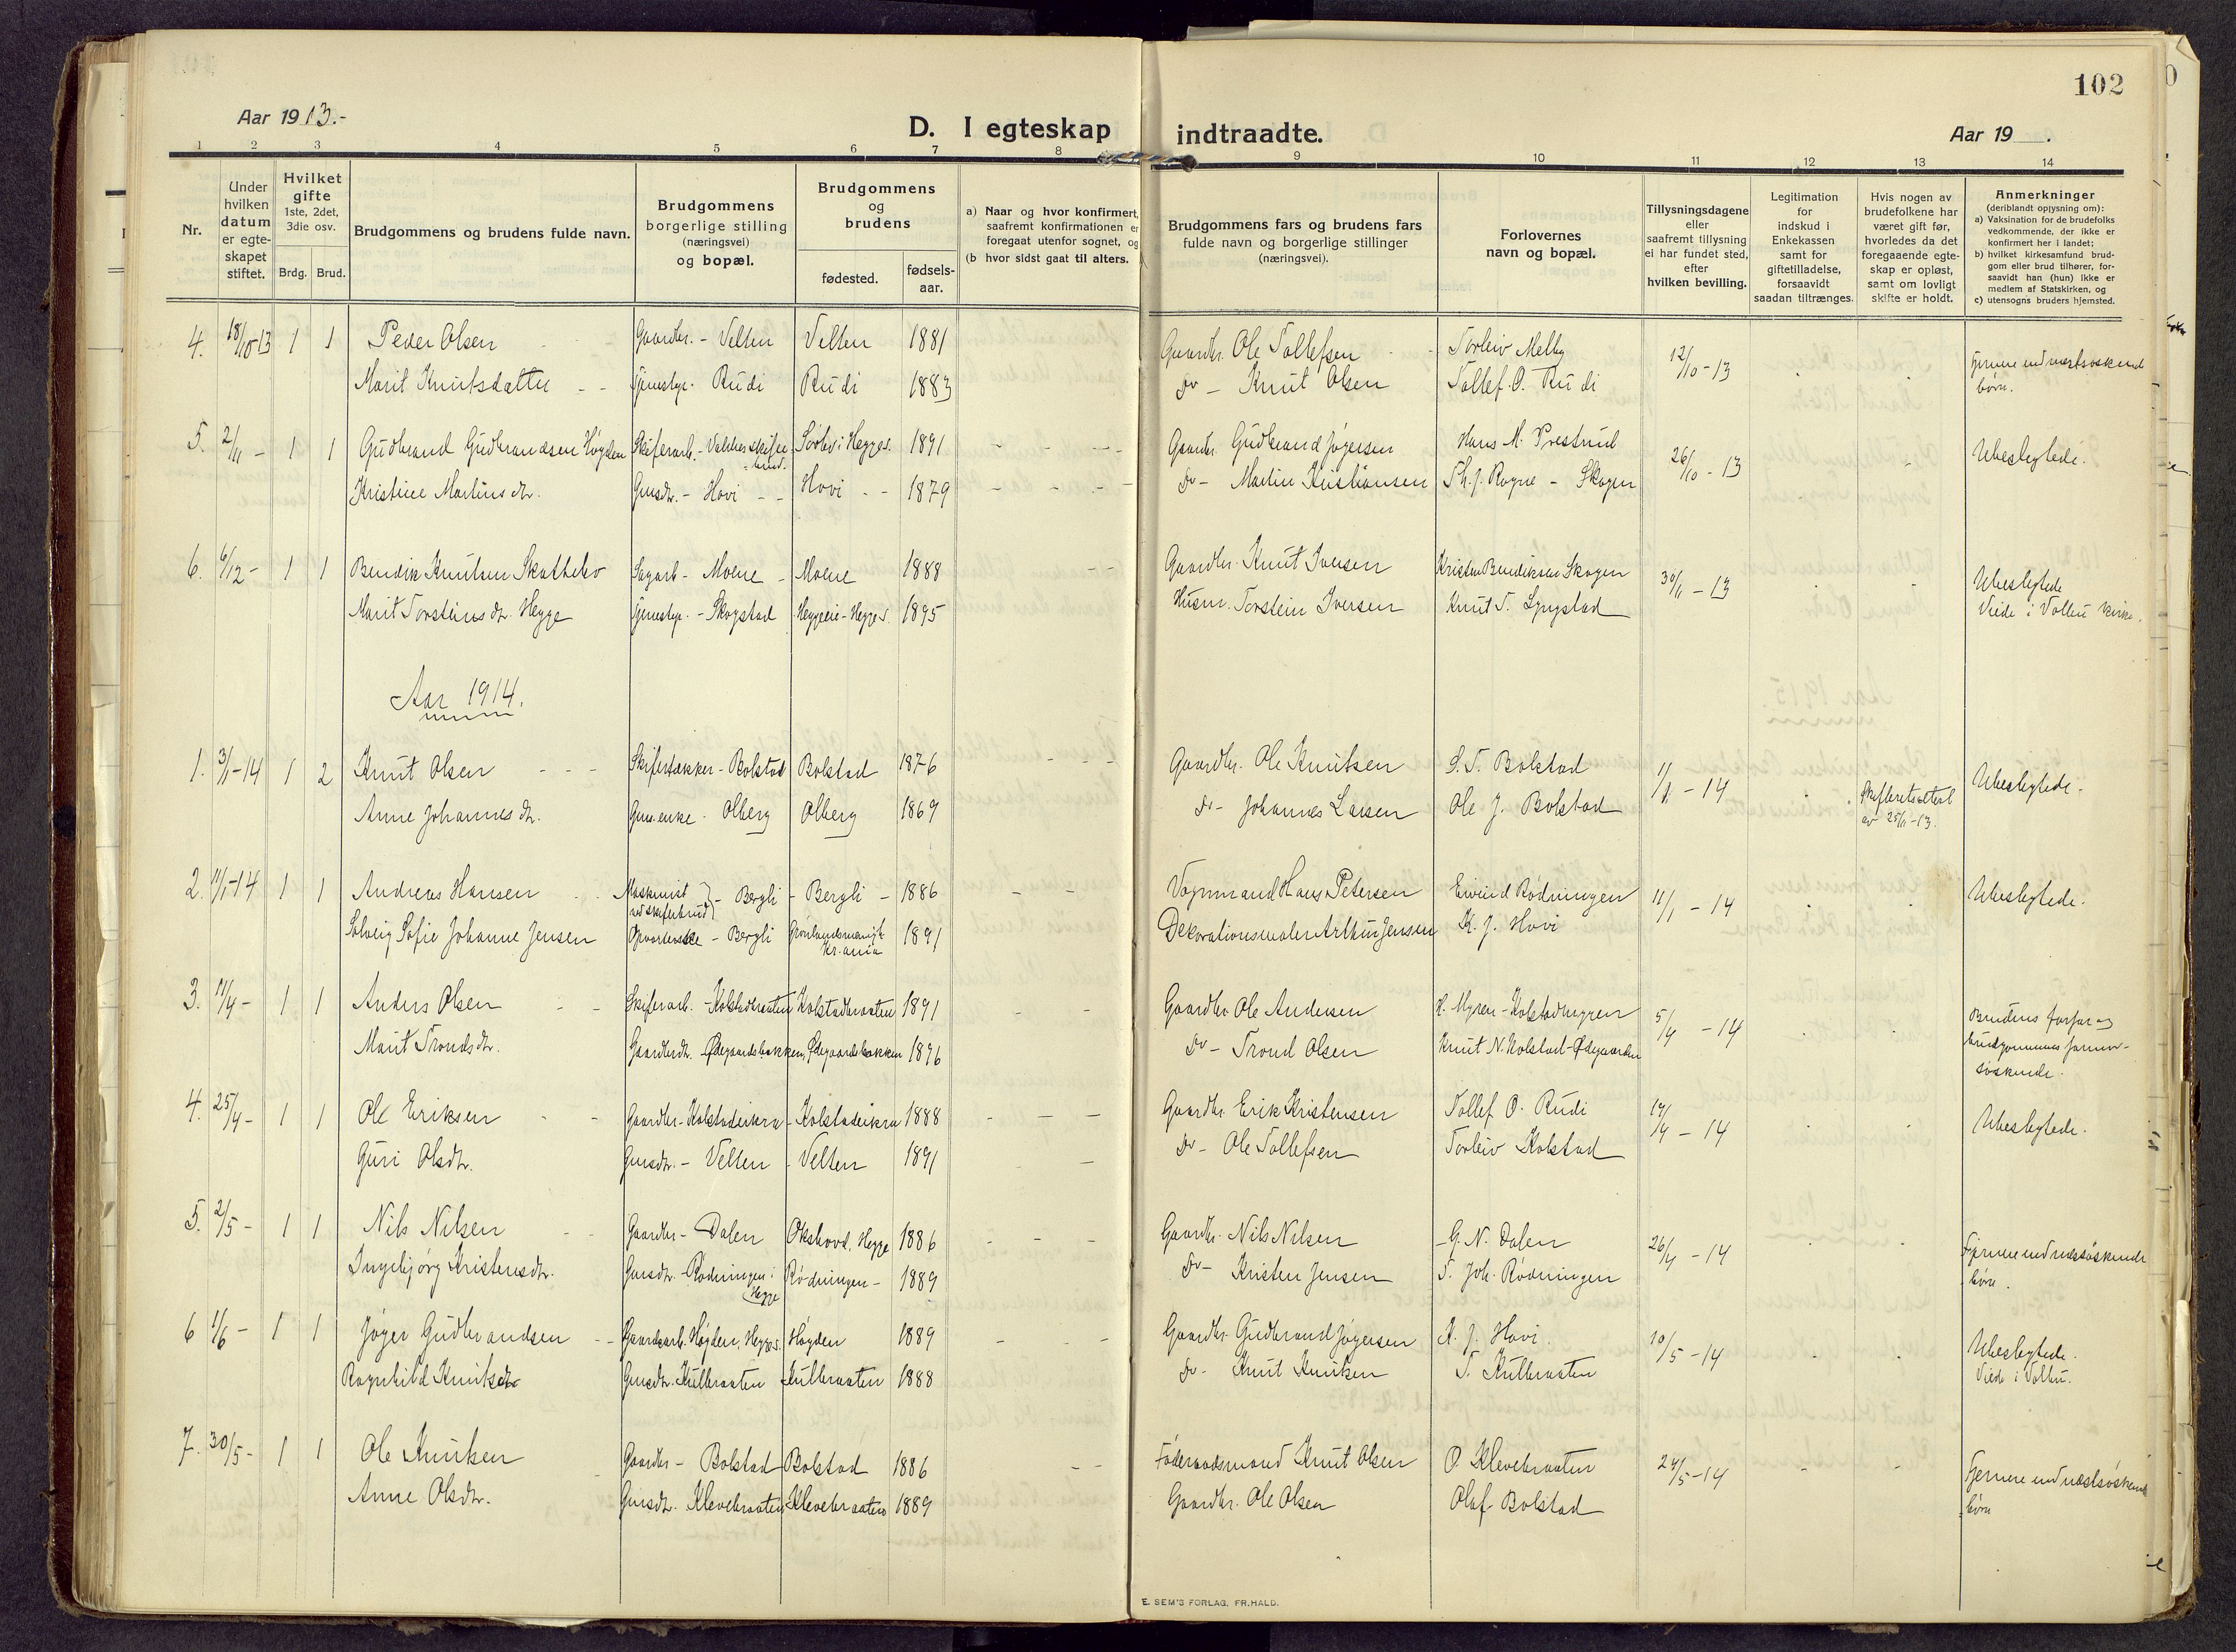 102
Aar 1913.-
D. I egteskap indtraadte.
Aar 19 .
1 2 3 4 5 6 7 8 9 10 11 12 13 14
Nr.
Under hvilken datum er egte- skapet stiftet.
Hvilket gifte 1ste, 2det, 3die osv.
Brdg. Brud.
Brudgommens og brudens fulde navn.
Brudgommens borgerlige stilling (næringsvei) og bopæl.
Brudgommens og brudens
fødested. fødsels- aar.
a) Naar og hvor konfirmert, saafremt konfirmationen er foregaat utenfor sognet, og
(b hvor sidst gaat til alters.
Brudgommens fars og brudens fars fulde navn og borgerlige stillinger (næringsvei).
Forlovernes navn og bopæl.
Tillysningsdagene eller saafremt tillysning ei har fundet sted, efter hvilken bevilling.
Legitimation for indskud i Enkekassen samt for giftetilladelse, forsaavidt saadan tiltrænges.
Hvis nogen av brudefolkene har været gift før, hvorledes da det foregaaende egte- skap er opløst, samt om lovligt skifte er holdt.
Anmerkninger (deriblandt opjysning om):
a) Vaksination for de brudefolks vedkommende, der ikke er konfirmert her i landet;
b) hvilket kirkesamfund brud- gom eller brud tilhører, for- saavidt han (hun) ikke er medlem af Statskirken, og
c) utensogns bruders hjemsted.
4. 18/10 13 1 1 Peder Olsen Gaardbr. - Velten Velten 1881 Gaardbr. Ole Tollefsen Torleiv Melby 12/10-13 Fjernere end næstsøskend
Marit Knutsdatter Tjenestepi. Rudi Rudi 1883 Do - Knut Olsen Tollef O. Rudi børn.
5. 2/11 - 1 1 Gudbrand Gudbrandsen Høgden Skiferarb. - Valdres skifer brud. 1891 Gaardbr. Gudbrand Jøgersen Hans M. Prestrud 26/10-13 Ubeslegtede.
Kristine Martinsdtr. Grmsdtr. - Hovi Hovi 1879 Do - Martin Kristiansen Th. J. Rogne - Skogen
6. 6/12 - 1 1 Bendik Knutsen Skattebo Sagarb. - Moene Moene 1888 Gaardbr. Knut Iversen Kristen Bendiksen Skogen 30/11-13 Ubeslegtede
Marit Torsteinsdtr. Hegge Tjenestepi. - Skogstad Heggeeie - Hegge s. 1895 Husm. Torstein Iversen Knut T. Lyngstad Viede i Volbu kirke.
Aar 1914.
1. 3/1-14 1 2 Knut Olsen Skifertækker - Bolstad Bolstad 1876 Gaardbr. Ole Knutsen S. T. Bolstad 1/1-14 Ubeslegtede.
Anne Johannesdtr. Grm.enke - Olberg Olberg 1869 Do - Johannes Larsen Ole J. Bolstad Skifteretsattest av 25/11-13.
2. 11/1-14 1 1 Andreas Hansen Maskinist ved skiferbrud - Bergli Bergli 1886 Vognmand Hans Petersen Eivind Rødningen 11/1-14 Ubeslegtede.
Solveig Sofie Johanne Jensen Opvarterske - Bergli Grønlandsmenigh. Kr.ania 1891 Dekorationsmaler Arthur Jensen K. J. Hovi
3. 14/4 - 1 1 Anders Olsen Skiferarb. - Kolstadbraaten Kolstadbraaten 1891 Gaardbr. Ole Andersen H. Myren - Kolstadmyren 5/4-14 Brudens farfar og
Marit Trondsdtr. Gaardbrdtr. Ødegaardsbakken, Ødegaardsbakken 1896 Do - Trond Olsen Knut N. Kolstad - Ødegaarden brudgommens farmor søskende.
4. 25/4 - 1 1 Ole Eriksen Gaardbr - Kolstadeikra Kolstadeikra 1888 Gaardbr. Erik Kristensen Tollef O. Rudi 19/4-14 Ubeslegtede.
Guri Olsdtr. Grmsdtr. - Velten Velten 1891 Do - Ole Tollefsen Torleiv Kolstad
5. 2/5 - 1 1 Nils Nilsen Gaardbr - Dalen Okshovd, Hegge 1886 Gaardbr. Nils Nilsen G. N. Dalen 26/4-14 Fjernere end næstsøskende
Ingebjørg Kristensdtr. Grmsdtr. - Rødningen i Hegge Rødningen - 1889 Do - Kristen Jensen T. Joh. Rødningen børn.
6 1/6 - 1 1 Jøger Gudbrandsen Gaardsarb. Høgden, Hegge s. Høgden 1889 Gaardbr. Gudbrand Jøgersen K. J. Hovi. 10/5-14 Ubeslegtede.
Ragnhild Knutsdtr Grmsdtr. Kulbraaten Kulbraaten 1888 Do - Knut Knutsen T. Kulbraaten Viede i Volbu.
7. 30/5 - 1 1 Ole Knutsen Gaardbr - Bolstad Bolstad 1886 Føderaadsmand Knut Olsen O. Klevebraaten 24/5-14 Fjernere end næstsøskende
Anne Olsdtr. Grmsdtr. Klevebraaten Klevebraaten 1889 Gaardbr. Ole Olsen Olaf Bolstad børn
E. SEM'S FORLAG, FR.HALD.